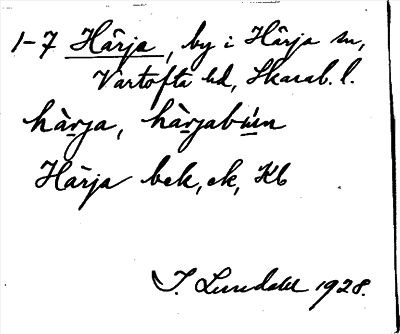 1-7 Härja, by i Härja sn,
Vartofta hd, Skarab. l.
hàrja, hàrjabúın
Härja bek, ek, Kb
I. Lundahl 1928.